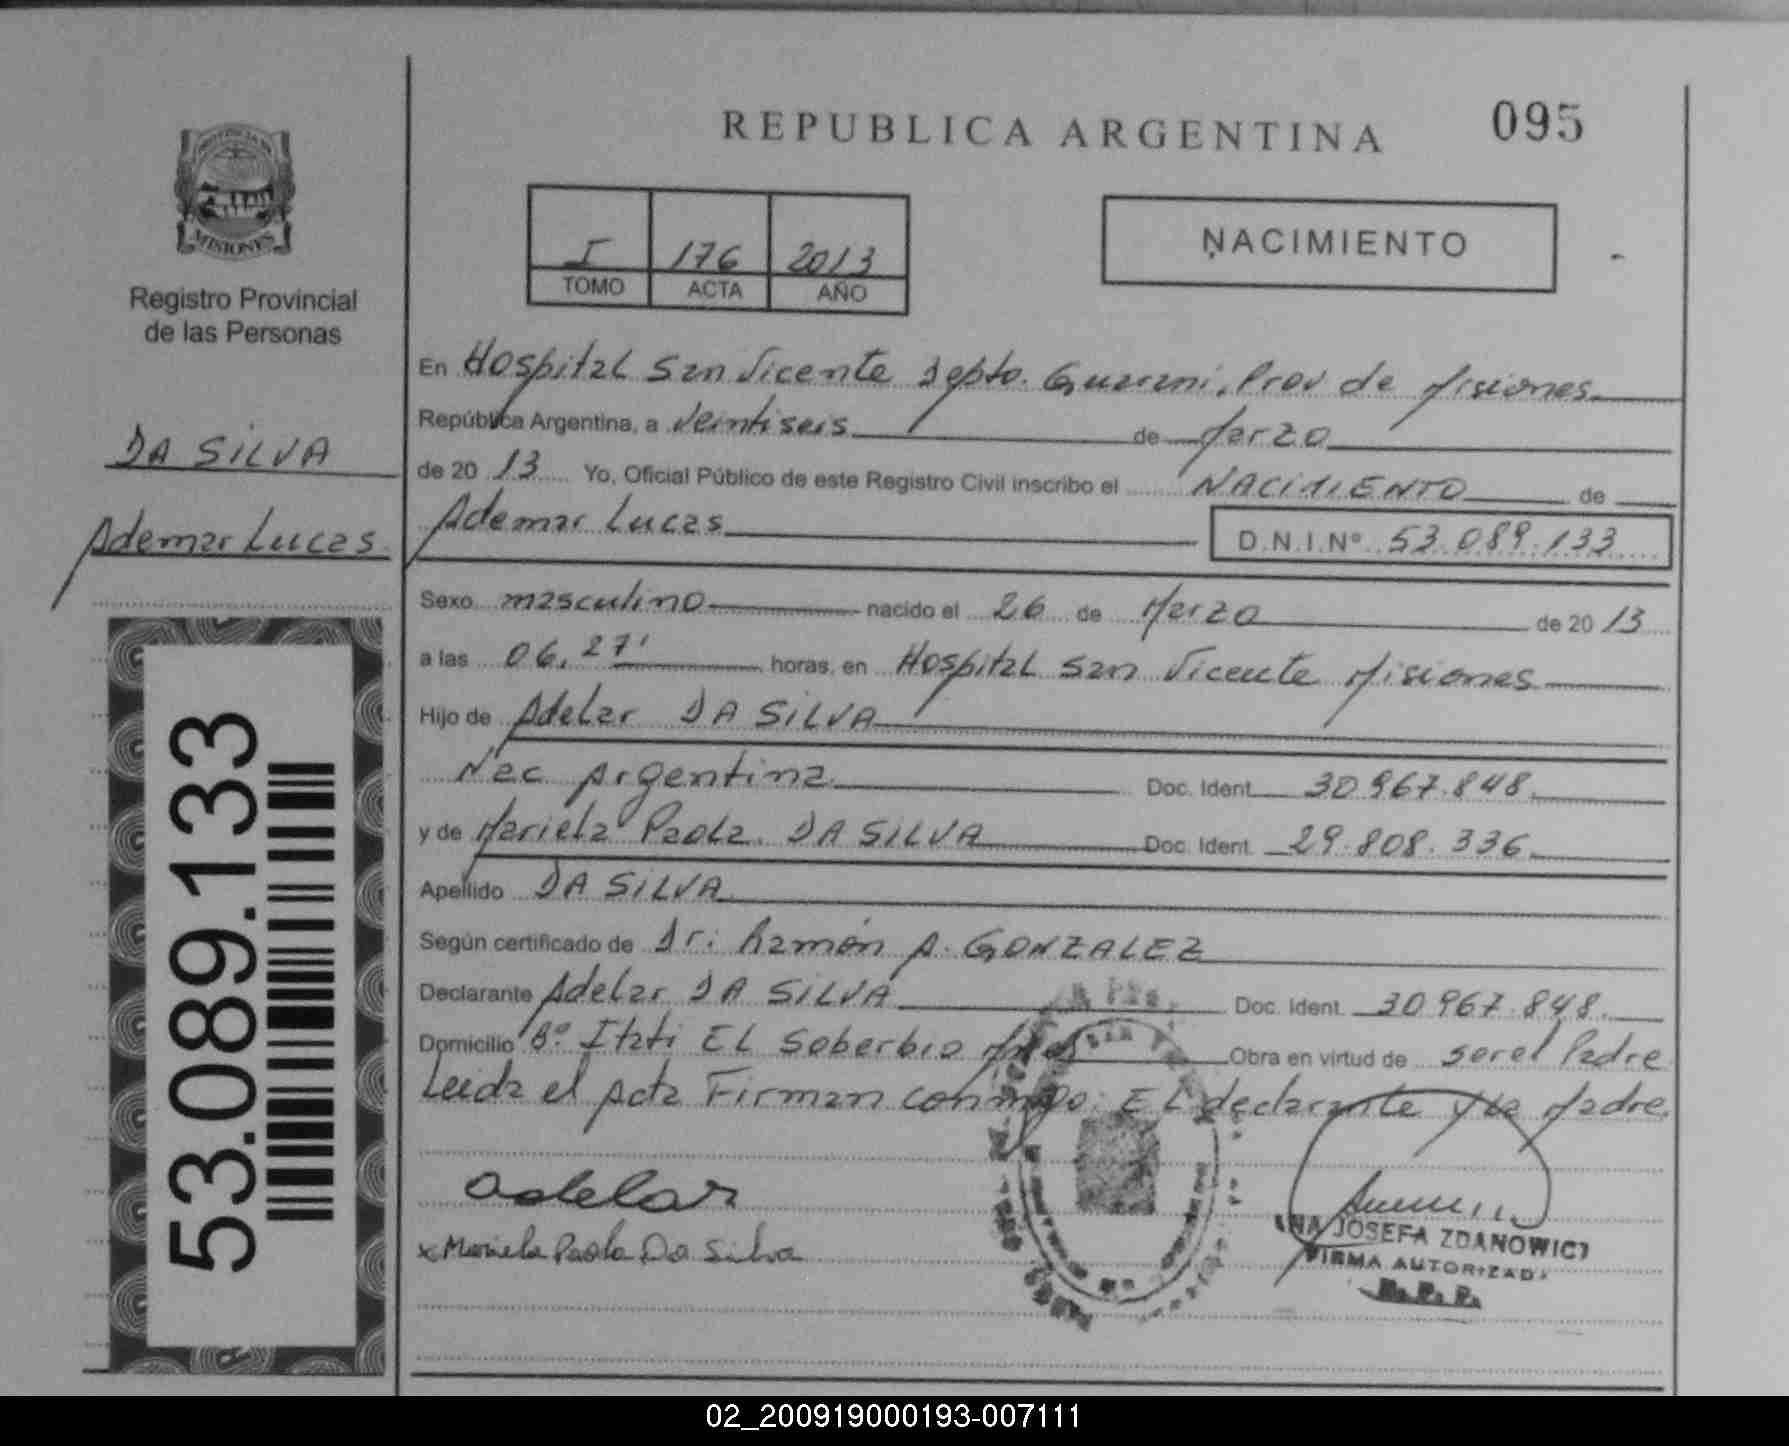 REPUBLICA ARGENTINA
095
MISIONES
Registro Provincial
de las Personas
DA SILVA
Ademar Lucas
53.089.133
I 176 2013
TOMO ACTA AÑO
NACIMIENTO
En Hospital San Vicente Depto. Guarani, Prov de Misiones
República Argentina, a Veintiseis de Marzo
de 20 13 Yo, Oficial Público de este Registro Civil inscribo el NACIMIENTO de
Ademar Lucas D.N.I.Nº 53.089.133
Sexo masculino nacido el 26 de Marzo de 20 13
a las 06,27' horas, en Hospital San Vicente Misiones
Hijo de Adelar DA SILVA
Nac Argentina Doc. Ident. 30.967.848
y de Mariela Paola DA SILVA Doc. Ident. 29.808.336
Apellido DA SILVA
Según certificado de Dr: Ramón A. GONZALEZ
Declarante Adelar DA SILVA Doc. Ident. 30.967.848
Domicilio Bº Itati EL Soberbio Mnes Obra en virtud de ser el Padre
Leida el Acta Firman conmigo: EL declarante y la Madre
adelar
x Mariela Paola Da Silva
JOSEFA ZDANOWICZ
FIRMA AUTORIZADA
R.P.P.
02_200919000193-007111